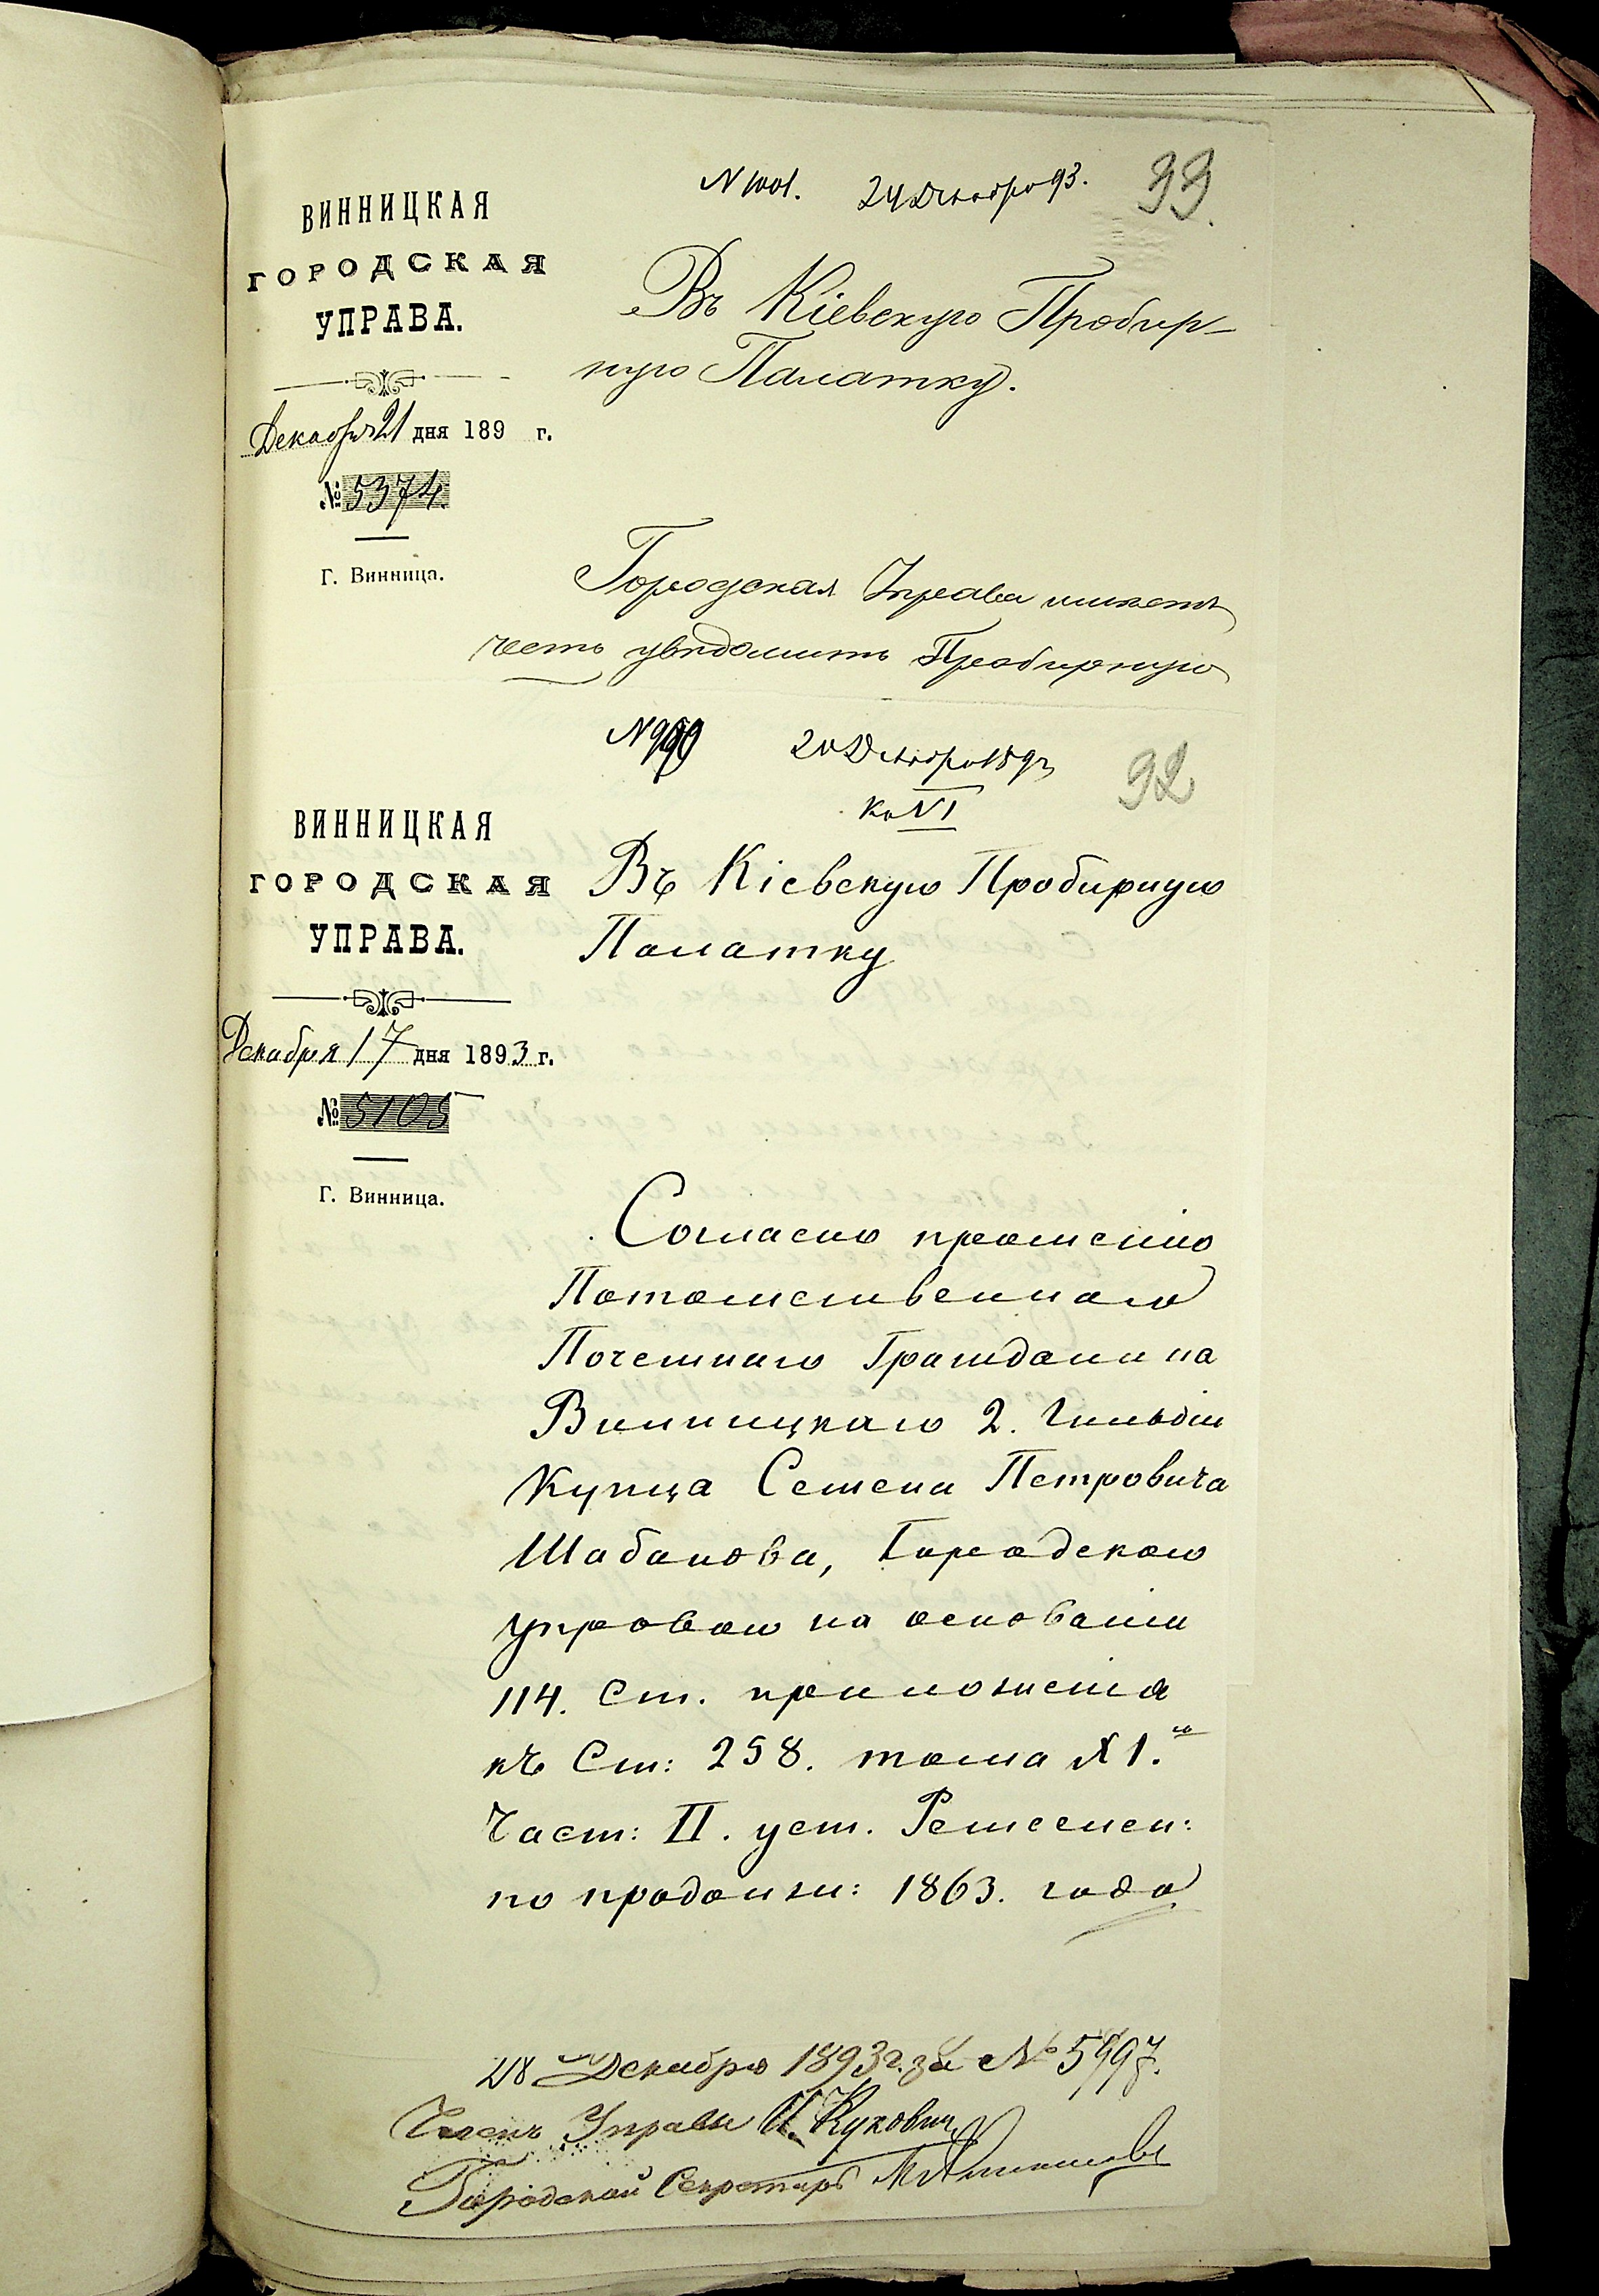 N 1001. 24 Декабря 93. 33.
ВИННИЦКАЯ
ГОРОДСКАЯ
УПРАВА.
Декабря 21 дня 189 г.
№ 5374.
Г. Винница.
Въ Кіевскую Пробир-
ную Палатку.
Городская Управа имѣетъ
честь увѣдомить Пробирную
20 Декабря 1893
32
ВИННИЦКАЯ
ГОРОДСКАЯ
УПРАВА.
Декабря 17 дня 1893 г.
№ 5105
Г. Винница.
Въ Кіевскую Пробирную
Палатку
Согласно прошенію
Потомственнаго
Почетнаго Гражданина
Винницкаго 2. Гильдіи
Купца Семена Петровича
Шабанова, Городскою
управою на основаніи
114. Ст. приложенія
къ Ст: 258. тома XI.го
Част: II. уст. Ремеслен:
по продолж: 1863. года
Декабря 1893 г. за №
Членъ Управы И. Кукович
Городской Секретарь